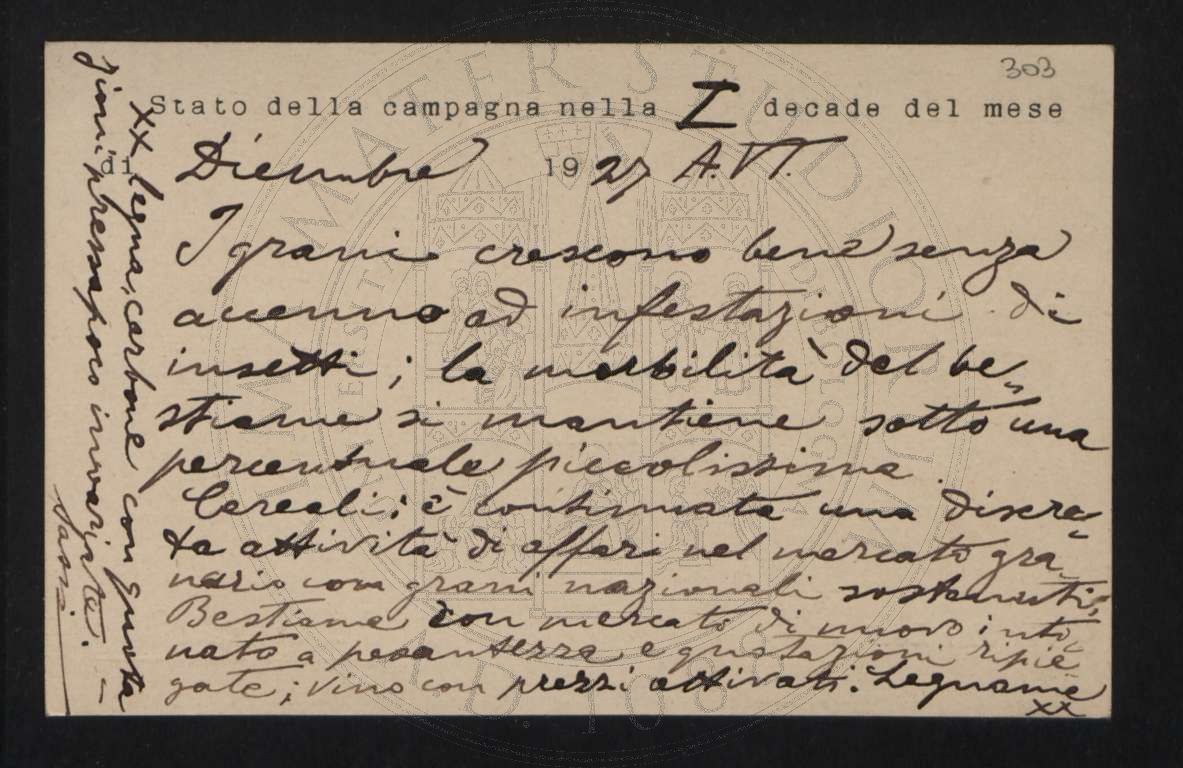 303
Stato della campagna nella I decade del mese
di Dicembre 1927 A. VI.
I grani crescono bene senza
accenno ad infestazioni di
insetti; la morbilità del be-
stiame si mantiene sotto una
percentuale piccolissima
Cereali: è continuata una discre-
ta attività di affari nel mercato gra-
nario con grani nazionali sostenuti;
Bestiame con mercato di nuovo into-
nato a pesantezza e quotazioni ripie-
gate; vino con prezzi attivati. Legname
xx
xx legna, carbone con quota
zioni pressapoco invariate. -